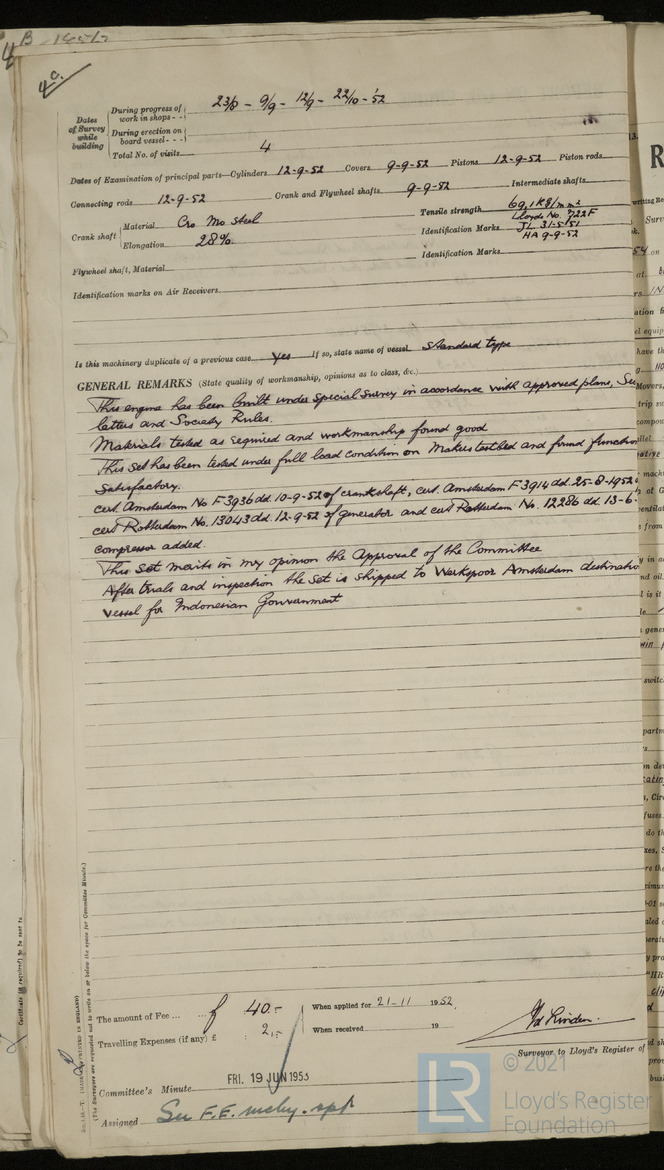 4a.
Dates of Survey while building
During progress of work in shops - - 23/8 - 9/9 - 12/9 - 22/10 - '52
During erection on board vessel - - -
Total No. of visits 4
Dates of Examination of principal parts—Cylinders 12-9-52 Covers 9-9-52 Pistons 12-9-52 Piston rods
Connecting rods 12-9-52 Crank and Flywheel shafts 9-9-52 Intermediate shafts
Crank shaft Material Cro Mo Steel Tensile strength 69,1 Kg/mm²
Elongation 28%. Identification Marks Lloyds No. 722F
JL 31-5-51
HA 9-9-52
Flywheel shaft, Material Identification Marks
Identification marks on Air Receivers
Is this machinery duplicate of a previous case yes If so, state name of vessel Standard type
GENERAL REMARKS (State quality of workmanship, opinions as to class, &c.)
This engine has been built under special survey in accordance with approved plans,
letters and Society Rules.
Materials tested as required and workmanship found good
This set has been tested under full load condition on Makers testbed and found
Satisfactory.
cert. Amsterdam No F3936 dd. 10-9-52 of crankshaft, cert. Amsterdam F3914 dd. 25-8-1952
cert Rotterdam No. 13043 dd. 12-9-52 of generator and cert Rotterdam No. 12286 dd. 13-6-
compressor added.
This set merits in my opinion the Approval of the Committee
After trials and inspection the set is shipped to Werkspoor Amsterdam
vessel for Indonesian Gouvernment
Certificate (if required) to be sent to
(The Surveyors are requested not to write on or below the space for Committee Minute.)
The amount of Fee ... ... f 40.-
When applied for 21-11 1952.
Travelling Expenses (if any) £ 2.-
When received 19
Surveyor to Lloyd's Register of
Committee's Minute FRI. 19 JUN 1953
Assigned See F.E. mchy. rpt.
LR © 2021
Lloyd's Register
Foundation